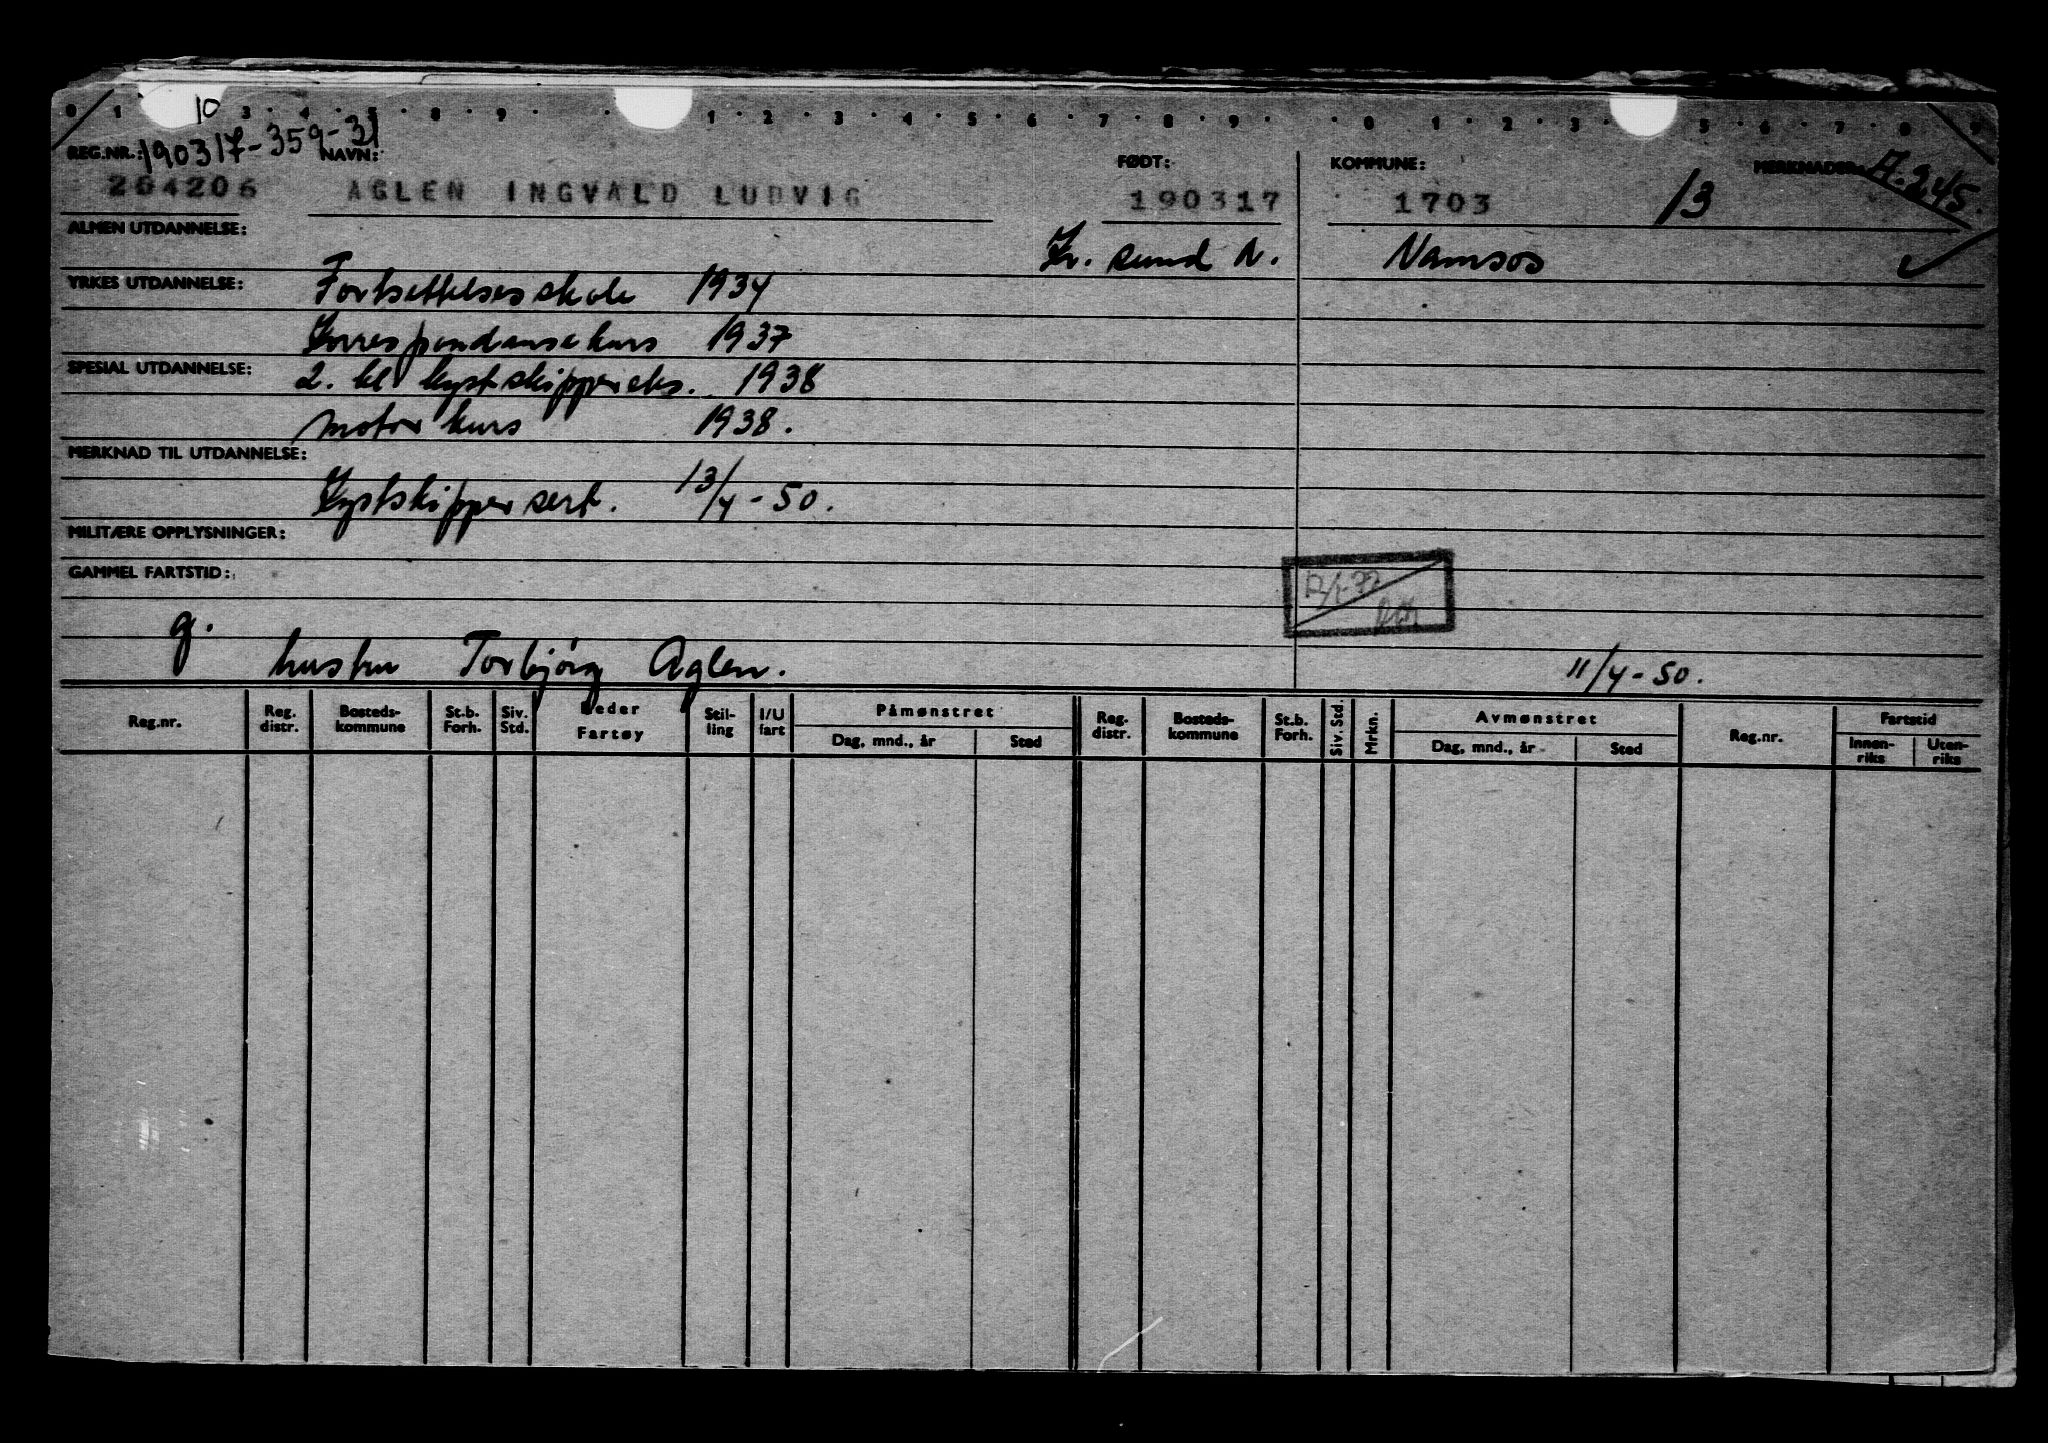 10
190317-359-31
REG.NR.: NAVN: FØDT: KOMMUNE: MERKNADER: A.245
204206 AGLEN INGVALD LUDVIG 190317 1703 13
ALMEN UTDANNELSE: Kr. sund N. Namsos
YRKES UTDANNELSE: Fortsettelsesskole 1934
Korrespondansekurs 1937
SPESIAL UTDANNELSE: 2. kl kystskippereks. 1938
Motorkurs 1938.
MERKNAD TIL UTDANNELSE:
Kystskippersert. 13/4-50.
MILITÆRE OPPLYSNINGER:
GAMMEL FARTSTID:
g. hustru Torbjørg Aglen. 11/4-50.
Reg.nr. Reg. distr. Bosteds-kommune St.b. Forh. Siv. Std. Reder Fartøy Stil-ling I/U fart Påmønstret Dag, mnd., år Sted Reg. distr. Bosteds-kommune St.b. Forh. Siv. Std. Mrkn. Avmønstret Dag, mnd., år Sted Reg.nr. Fartstid Innen-riks Uten-riks